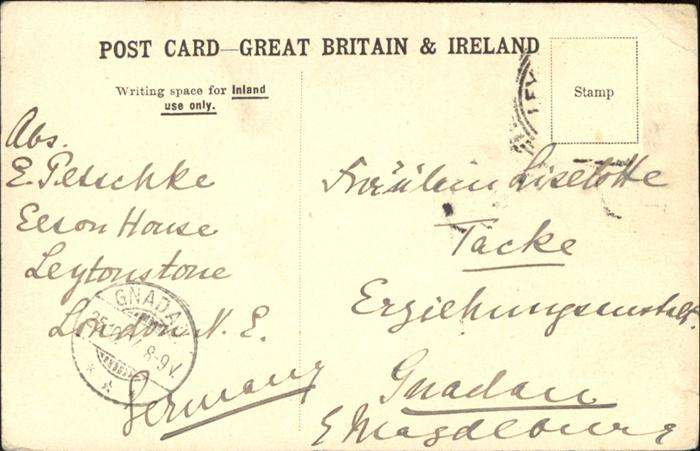 POST CARD—GREAT BRITAIN & IRELAND
Writing space for Inland
use only.
Stamp
Abs.
E. Petschke
Elson House
Leytonstone
London N. E.
Germany
Fräulein Liselotte
Tacke
Erziehungsanstalt.
Gnadau
Magdeburg
GNADAU
8-9V.